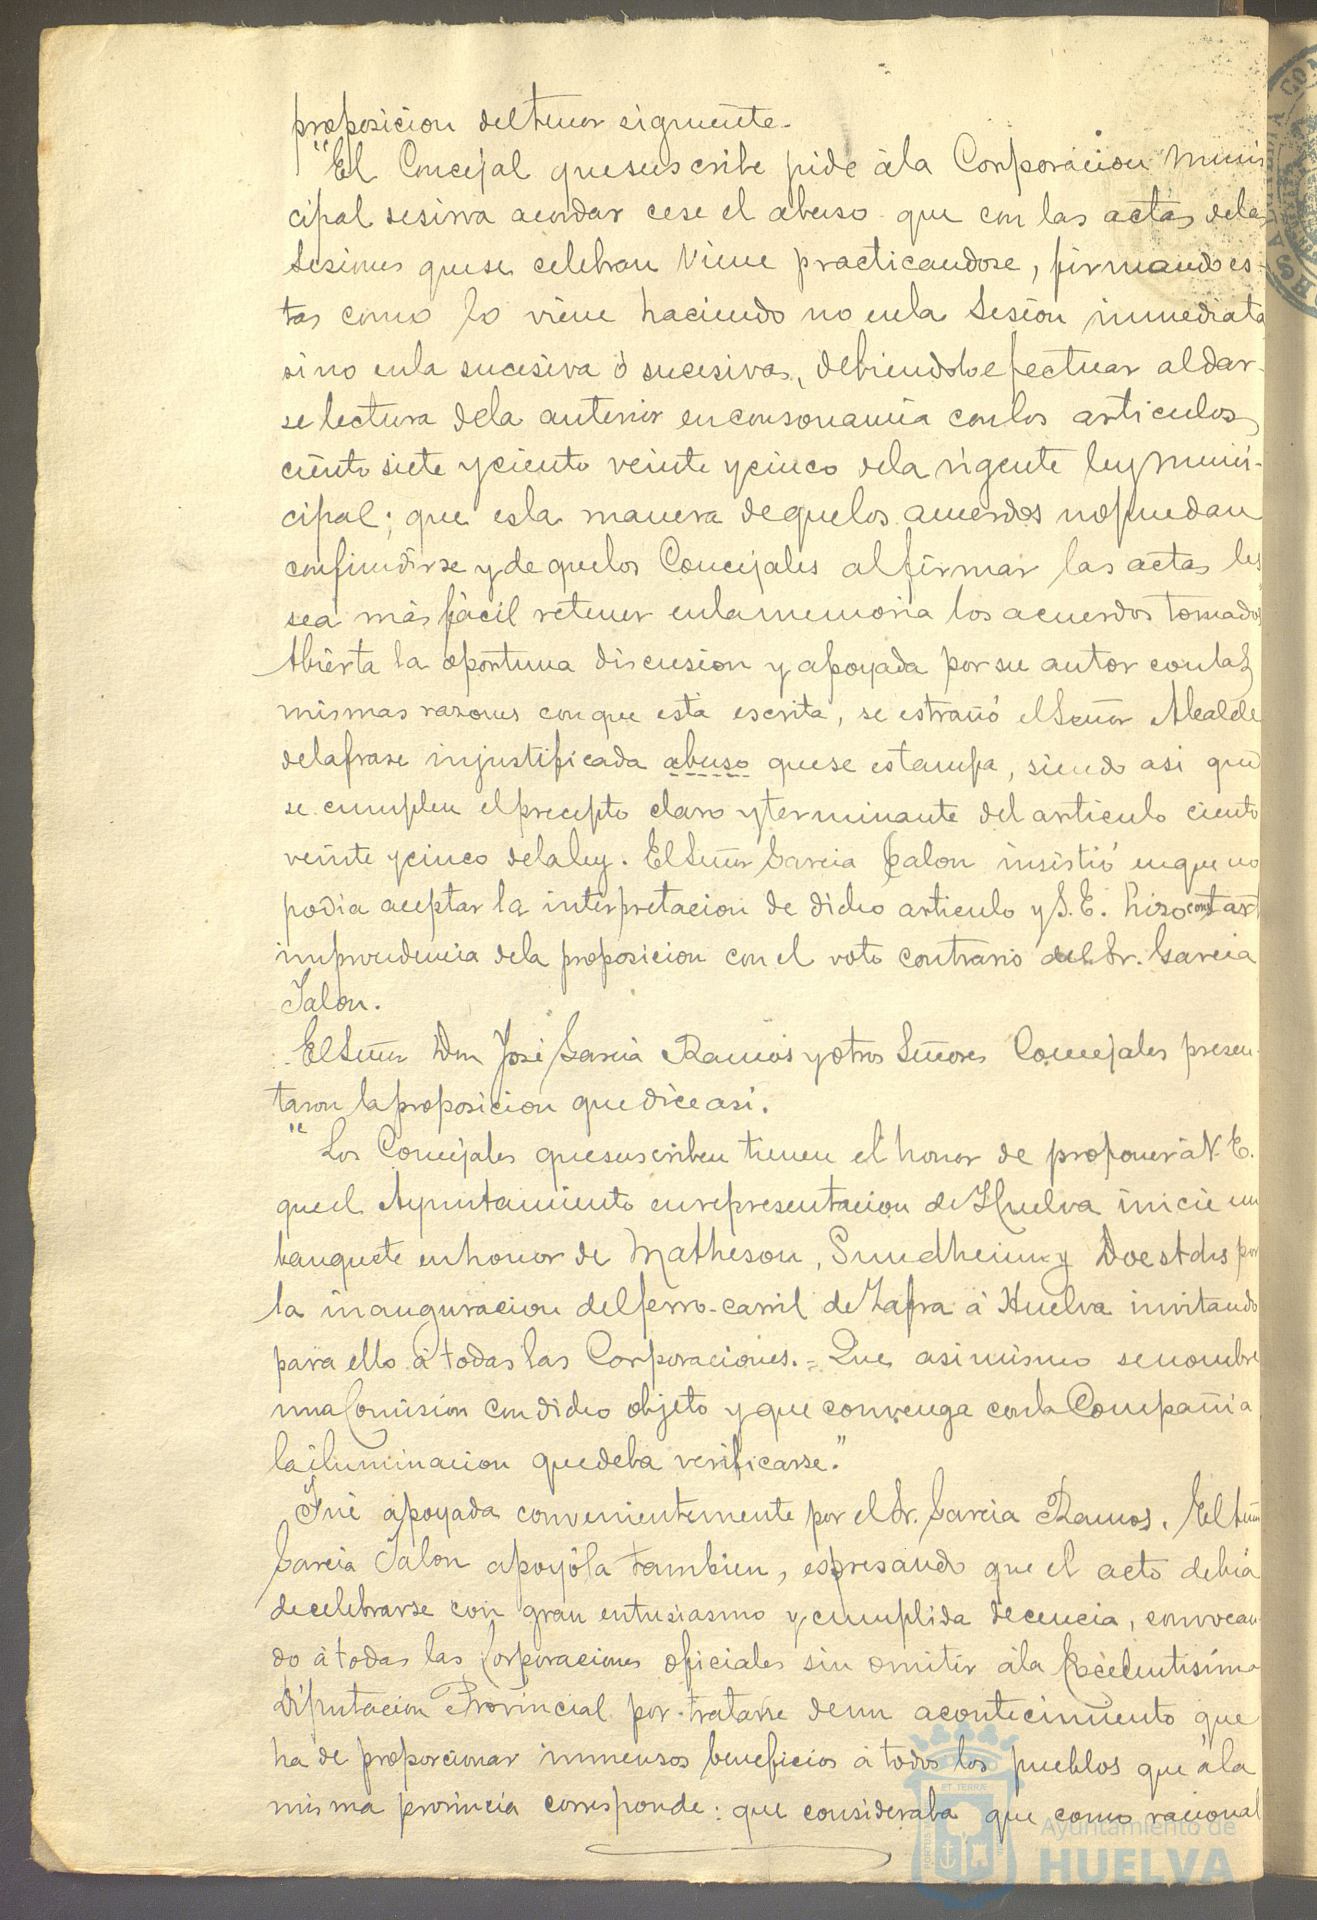 proposicion del tenor siguiente.
"El Concejal que suscribe pide á la Corporacion Muni-
cipal se sirva acordar cese el abuso que con las actas de las
Sesiones que se celebran viene practicandose, firmando es-
tas como lo viene haciendo no en la Sesion inmediata
sino en la sucesiva ó sucesivas, debiendolo efectuar al dar-
se lectura de la anterior en consonancia con los articulos
ciento siete y ciento veinte y cinco de la vigente ley Muni-
cipal; que es la manera de que los acuerdos no puedan
confundirse y de que los Concejales al firmar las actas les
sea más fácil retener en la memoria los acuerdos tomados
Abierta la oportuna discusion y apoyada por su autor con las
mismas razones con que está escrita, se estrañó el Señor Alcalde
de la frase injustificada abuso que se estampa, siendo asi que
se cumplen el precepto claro y terminante del articulo ciento
veinte y cinco de la ley. El Señor Garcia Jalon insistió en que no
podia aceptar la interpretacion de dicho articulo y S. E. hizo constar
improcedencia de la proposicion con el voto contrario del Sr. Garcia
Jalon.
El Señor Don José Garcia Ramos y otros Señores Concejales presen-
taron la proposicion que dice asi.
"Los Concejales que suscriben tienen el honor de proponer á V. E.
que el Ayuntamiento en representacion de Huelva inicie un
banquete en honor de Matheson, Sundheim y Doestchs por
la inauguracion del ferro-carril de Zafra á Huelva invitando
para ello á todas las Corporaciones. = Que asi mismo se nombre
una Comision con dicho objeto y que convenga con la Compañia
la iluminacion que deba verificarse."
Fué apoyada convenientemente por el Sr. Garcia Ramos. El Señor
Garcia Jalon apoyóla tambien, espresando que el acto debia
de celebrarse con gran entusiasmo y cumplida decencia, convocan-
do á todas las Corporaciones oficiales sin omitir á la Excelentísima
Diputacion Provincial por tratarse de un acontecimiento que
ha de proporcionar inmensos beneficios á todos los pueblos que á la
misma provincia corresponde: que consideraba que como racional
Ayuntamiento de
HUELVA